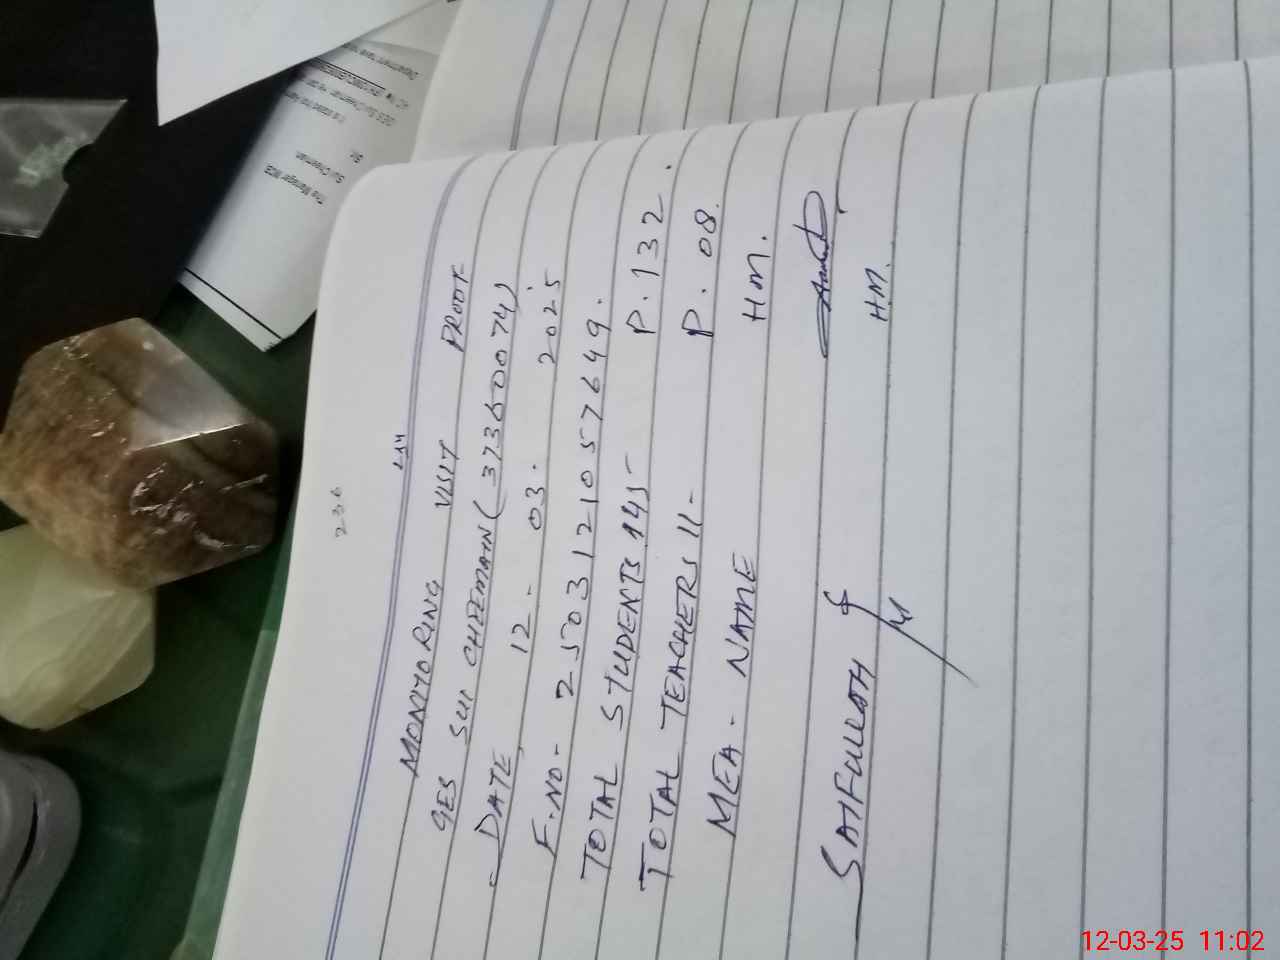 236
MONITORING VISIT PROOF
GES SUI CHEEMAIN (37360074)
DATE, 12 - 03 - 2025
F.NO- 2503121057649.
TOTAL STUDENTS 145- P. 132.
TOTAL TEACHERS 11- P. 08.
MEA - NAME HM.
SAIFULLAH
HM.
The Manager
Sir,
12-03-25 11:02